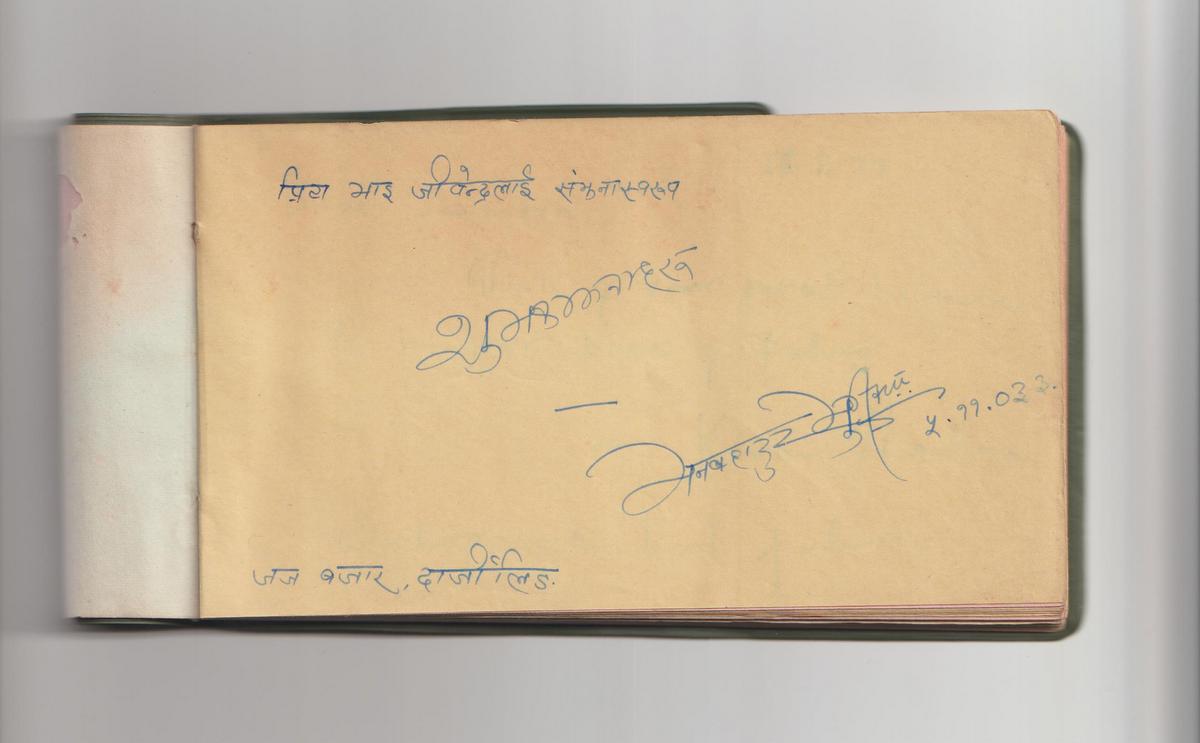 प्रिय भाइ जीवेन्द्रलाई संझनास्वरूप
शुभकामनाहरू
मनबहादुर मुखिया
५.११.०३३.
जज बजार, दार्जीलिङ.